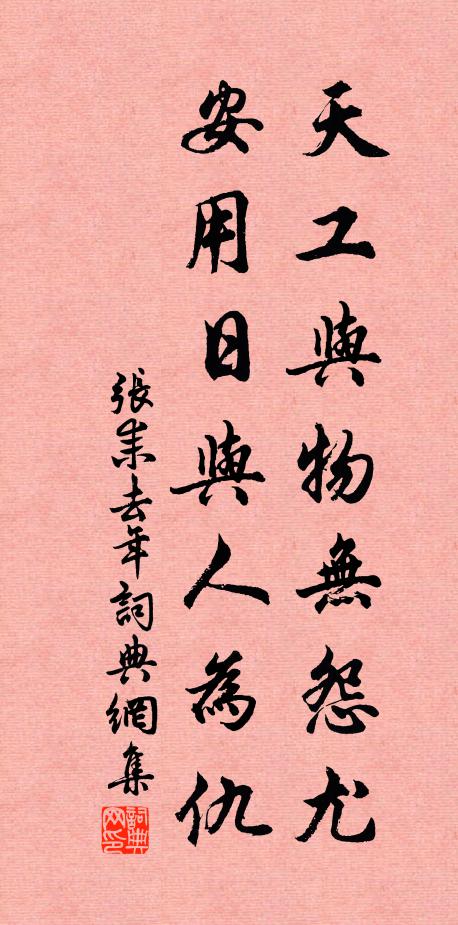 天工與物無怨尤
安用日與人為仇
張耒去年詞典網集
詞典网印